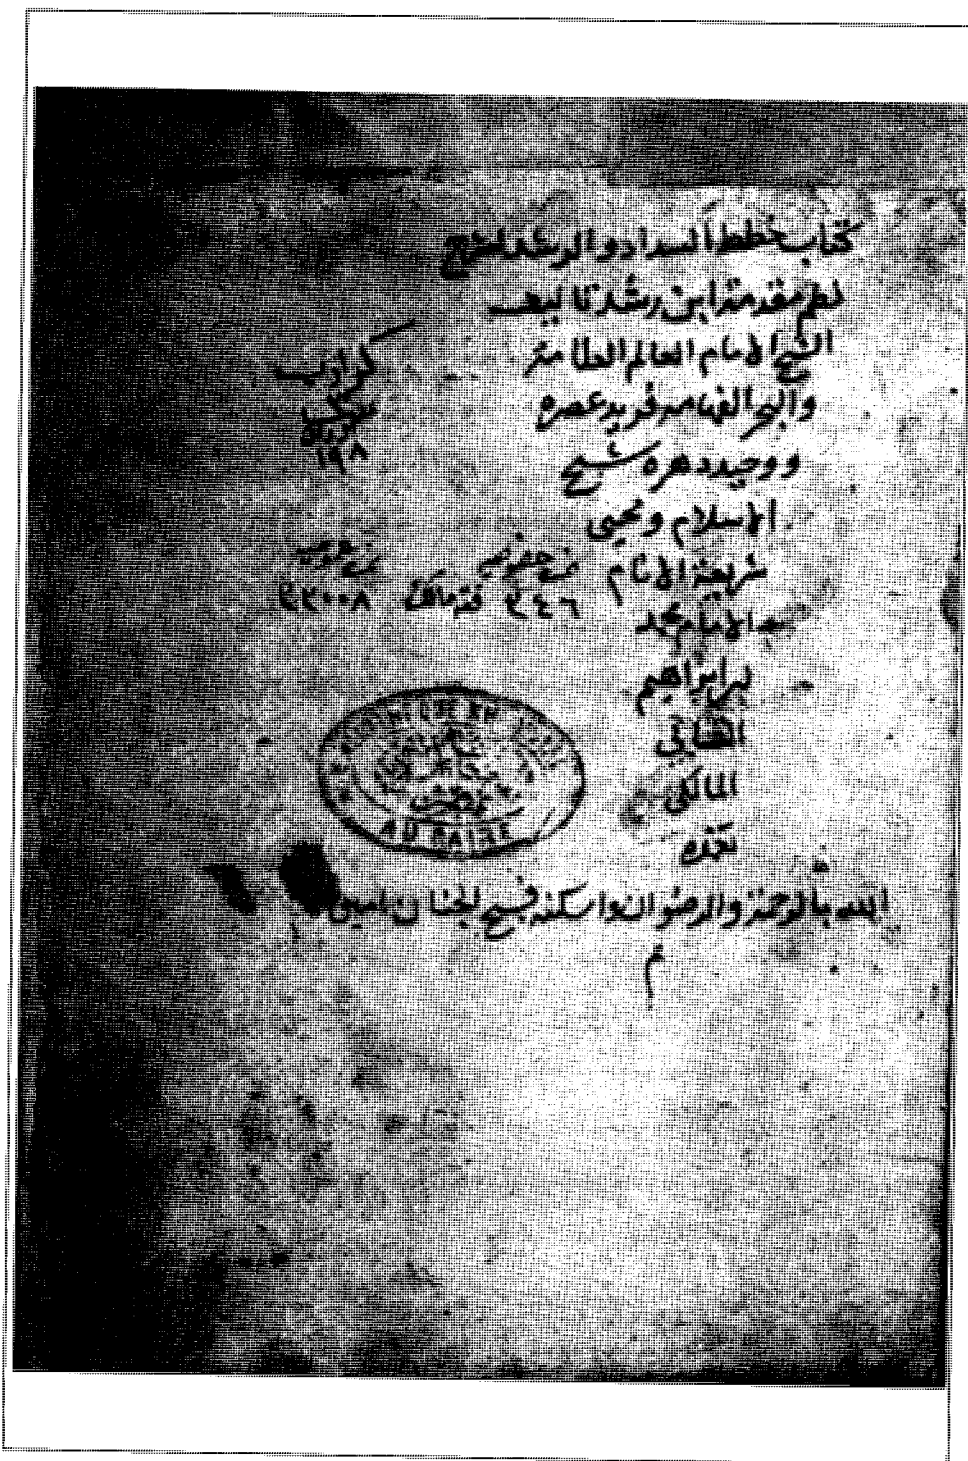 كتاب خطط السداد والرشد لشرح
نظم مقدمة ابن رشد تاليف
الشيخ الامام العالم العلامة
والبحر الفهامه فريد عصره
ووحيد دهره شيخ
الاسلام ومحيي
شريعة الانام
الامام محمد
بن ابراهيم
التتائي
المالكي
تغمده
الله بالرحمة والرضوان واسكنه فسيح الجنان امين
م
١٩٨
نمرة خصوصيه
٣٤٦ فقه مالك
نمرة عموميه
AU CAIRE